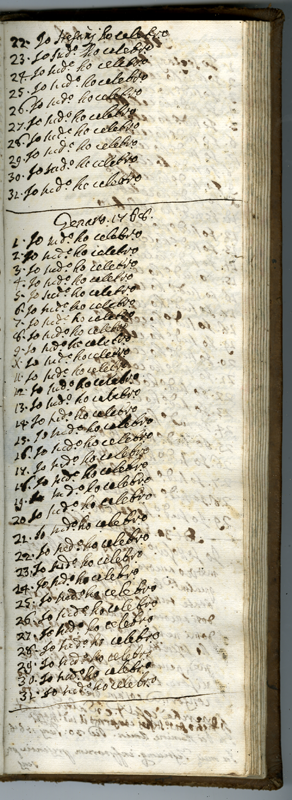 22. Io Stefani ho celebro
23. Io sud.o ho celebro
24. Io sud.o ho celebro
25. Io sud.o ho celebro
26. Io sud.o ho celebro
27. Io sud.o ho celebro
28. Io sud.o ho celebro
29. Io sud.o ho celebro
30. Io sud.o ho celebro
31. Io sud.o ho celebro
Genaro. 1788.
1. Io sud.o ho celebro
2. Io sud.o ho celebro
3. Io sud.o ho celebro
4. Io sud.o ho celebro
5. Io sud.o ho celebro
6. Io sud.o ho celebro
7. Io sud.o ho celebro
8. Io sud.o ho celebro
9. Io sud.o ho celebro
Io sud.o ho celebro
11. Io sud.o ho celebro
12. Io sud.o ho celebro
13. Io sud.o ho celebro
14. Io sud.o ho celebro
15. Io sud.o ho celebro
16. Io sud.o ho celebro
17. Io sud.o ho celebro
18. Io sud.o ho celebro
19. Io sud.o ho celebro
20. Io sud.o ho celebro
21. Io sud.o ho celebro
22. Io sud.o ho celebro
23. Io sud.o ho celebro
24. Io sud.o ho celebro
25. Io sud.o ho celebro
26. Io sud.o ho celebro
27. Io sud.o ho celebro
28. Io sud.o ho celebro
29. Io sud.o ho celebro
30. Io sud.o ho celebro
31. Io sud.o ho celebro